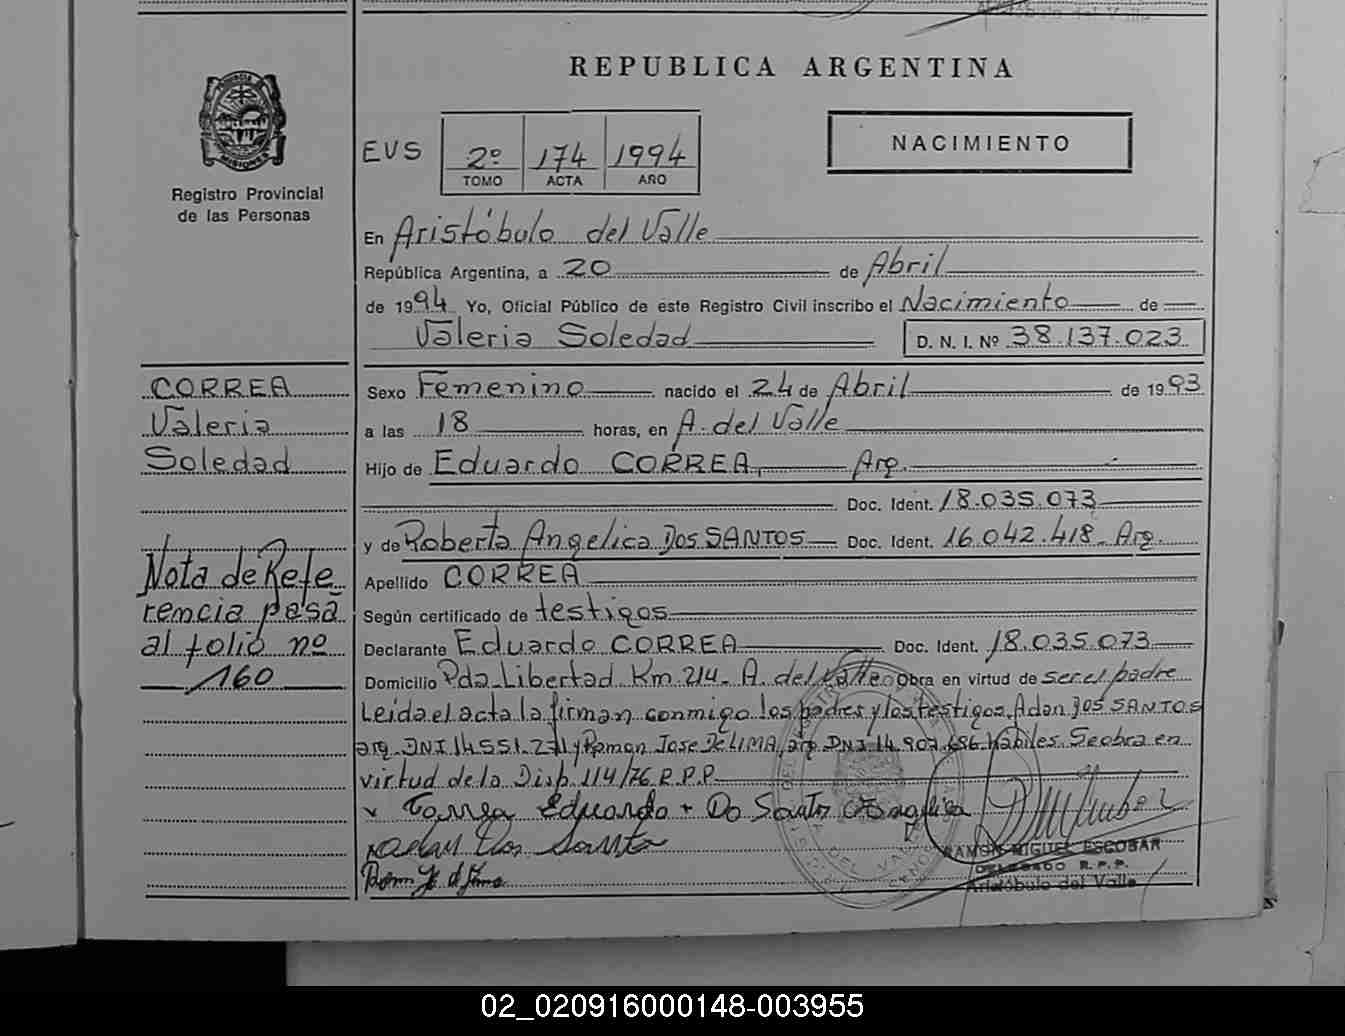 Aristóbulo del Valle
REPUBLICA ARGENTINA
PROVINCIA DE
MISIONES
Registro Provincial
de las Personas
EVS
2º 174 1994
TOMO ACTA AÑO
NACIMIENTO
En Aristóbulo del Valle
República Argentina, a 20 de Abril
de 1994 Yo, Oficial Público de este Registro Civil inscribo el Nacimiento de
Valeria Soledad D. N. I. Nº 38.137.023
CORREA
Valeria
Soledad
Nota de Refe
rencia pasa
al folio nº
160
Sexo Femenino nacido el 24 de Abril de 1993
a las 18 horas, en A. del Valle
Hijo de Eduardo CORREA, Arg.
Doc. Ident. 18.035.073
y de Roberta Angelica Dos SANTOS Doc. Ident. 16.042.418 Arg.
Apellido CORREA
Según certificado de testigos
Declarante Eduardo CORREA Doc. Ident. 18.035.073
Domicilio Pda-Libertad Km 214- A. del Valle Obra en virtud de ser el padre
Leida el acta la firman conmigo los padres y los testigos, Adan Dos SANTOS
arg DNI 14.551.271 y Ramon Jose De LIMA, arg. DNI 14.907.686 habiles. Se obra en
virtud de la Disp. 114/76 R.P.P.
x Correa Eduardo + Do Santos Angelica
Adan Dos Santo
Ramon J. d Lima
RAMON MIGUEL ESCOBAR
DELEGADO R.P.P.
Aristóbulo del Valle
02_020916000148-003955